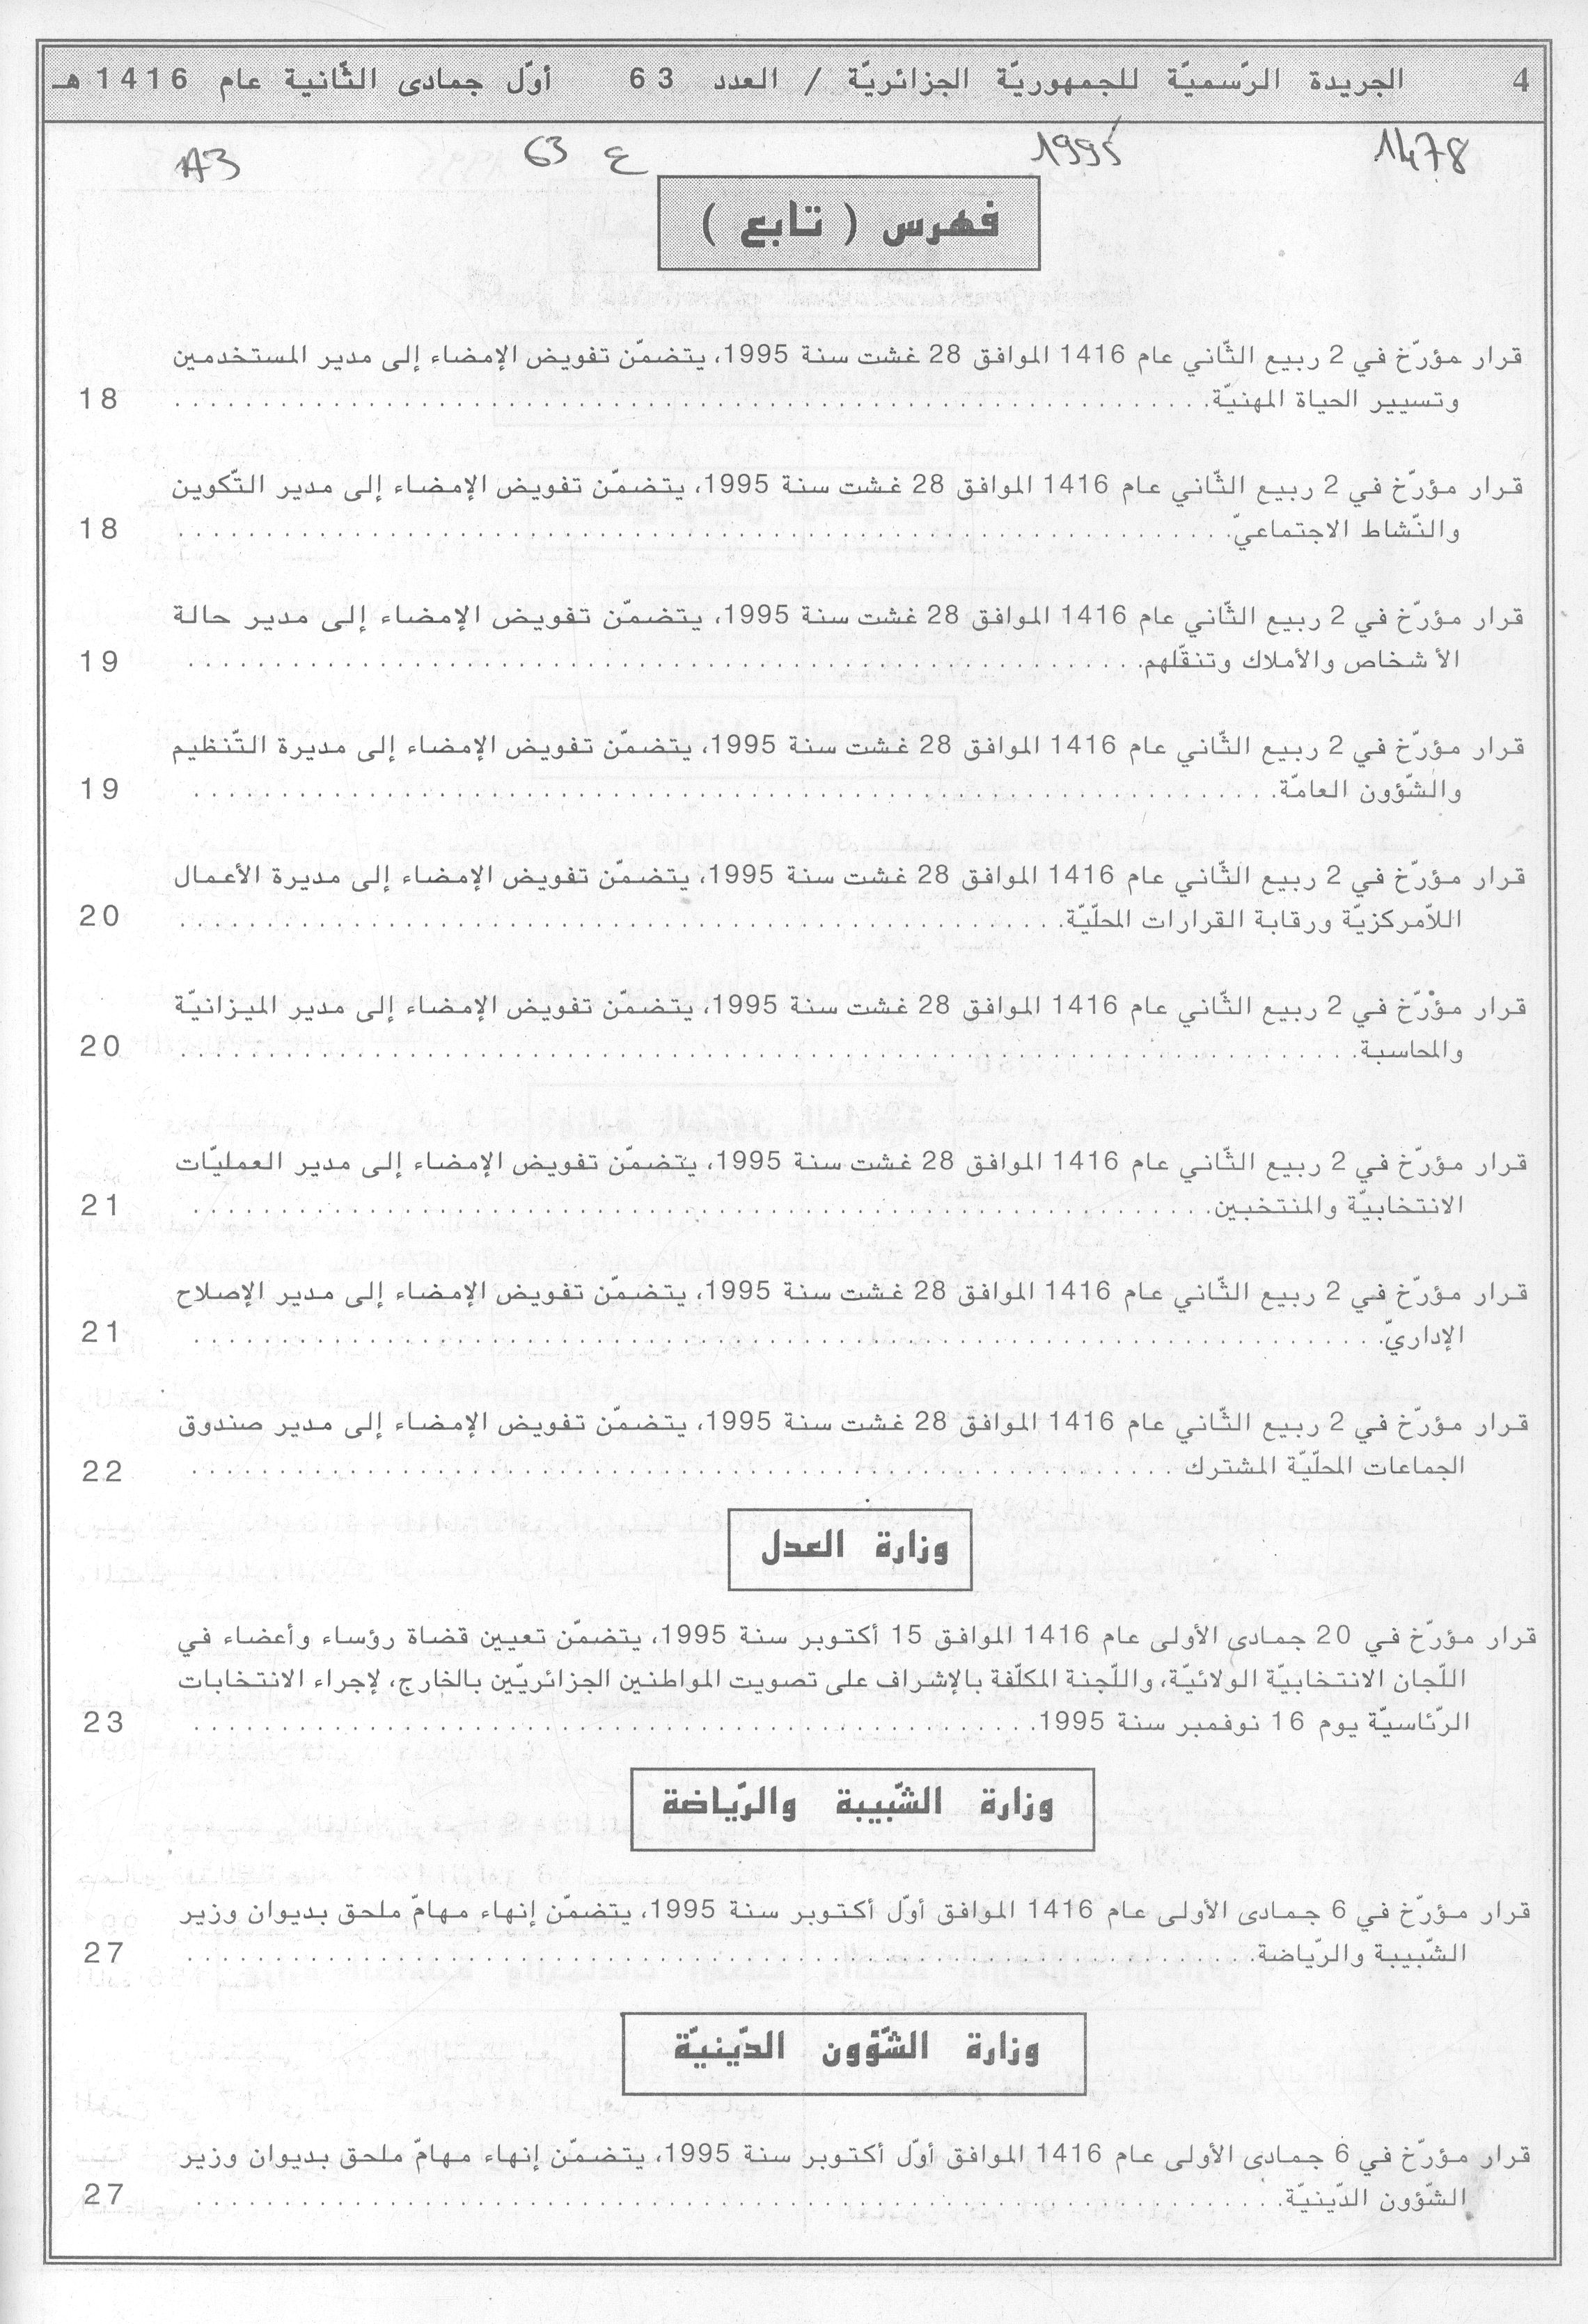 4 الجريدة الرّسميّة للجمهوريّة الجزائريّة / العدد 63 أوّل جمادى الثّانية عام 1416 هـ
1478 1995 ع 63 A3
فهرس ( تابع )
قرار مؤرّخ في 2 ربيع الثّاني عام 1416 الموافق 28 غشت سنة 1995، يتضمّن تفويض الإمضاء إلى مدير المستخدمين
وتسيير الحياة المهنيّة. 18
قرار مؤرّخ في 2 ربيع الثّاني عام 1416 الموافق 28 غشت سنة 1995، يتضمّن تفويض الإمضاء إلى مدير التّكوين
والنّشاط الاجتماعيّ. 18
قرار مؤرّخ في 2 ربيع الثّاني عام 1416 الموافق 28 غشت سنة 1995، يتضمّن تفويض الإمضاء إلى مدير حالة
الأشخاص والأملاك وتنقّلهم. 19
قرار مؤرّخ في 2 ربيع الثّاني عام 1416 الموافق 28 غشت سنة 1995، يتضمّن تفويض الإمضاء إلى مديرة التّنظيم
والشّؤون العامّة. 19
قرار مؤرّخ في 2 ربيع الثّاني عام 1416 الموافق 28 غشت سنة 1995، يتضمّن تفويض الإمضاء إلى مديرة الأعمال
اللاّمركزيّة ورقابة القرارات المحلّيّة. 20
قرار مؤرّخ في 2 ربيع الثّاني عام 1416 الموافق 28 غشت سنة 1995، يتضمّن تفويض الإمضاء إلى مدير الميزانيّة
والمحاسبة. 20
قرار مؤرّخ في 2 ربيع الثّاني عام 1416 الموافق 28 غشت سنة 1995، يتضمّن تفويض الإمضاء إلى مدير العمليّات
الانتخابيّة والمنتخبين. 21
قرار مؤرّخ في 2 ربيع الثّاني عام 1416 الموافق 28 غشت سنة 1995، يتضمّن تفويض الإمضاء إلى مدير الإصلاح
الإداريّ. 21
قرار مؤرّخ في 2 ربيع الثّاني عام 1416 الموافق 28 غشت سنة 1995، يتضمّن تفويض الإمضاء إلى مدير صندوق
الجماعات المحلّيّة المشترك 22
وزارة العدل
قرار مؤرّخ في 20 جمادى الأولى عام 1416 الموافق 15 أكتوبر سنة 1995، يتضمّن تعيين قضاة رؤساء وأعضاء في
اللّجان الانتخابيّة الولائيّة، واللّجنة المكلّفة بالإشراف على تصويت المواطنين الجزائريّين بالخارج، لإجراء الانتخابات
الرّئاسيّة يوم 16 نوفمبر سنة 1995. 23
وزارة الشّبيبة والرّياضة
قرار مؤرّخ في 6 جمادى الأولى عام 1416 الموافق أوّل أكتوبر سنة 1995، يتضمّن إنهاء مهامّ ملحق بديوان وزير
الشّبيبة والرّياضة. 27
وزارة الشّؤون الدّينيّة
قرار مؤرّخ في 6 جمادى الأولى عام 1416 الموافق أوّل أكتوبر سنة 1995، يتضمّن إنهاء مهامّ ملحق بديوان وزير
الشّؤون الدّينيّة. 27